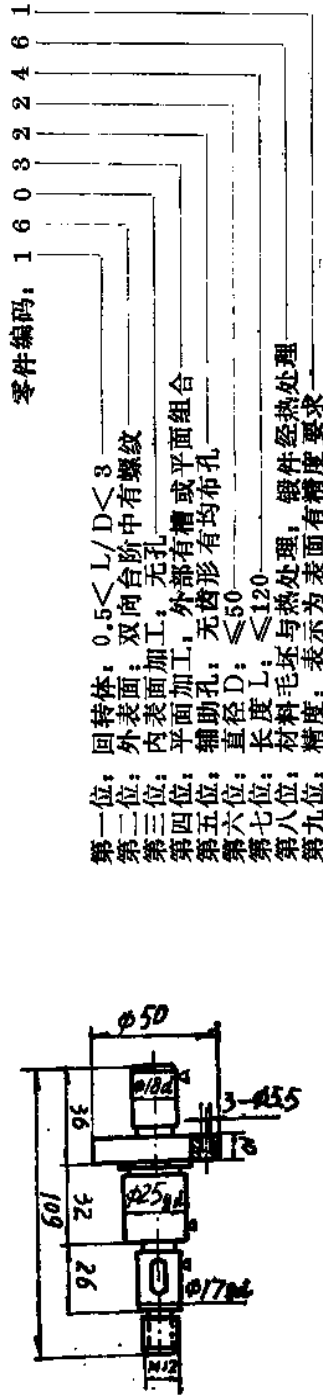 零件编码： 1 6 0 3 2 2 4 6 1
第一位： 回转体： 0.5＜L/D＜3
第二位： 外表面： 双向台阶中有螺纹
第三位： 内表面加工： 无孔
第四位： 平面加工： 外部有槽或平面组合
第五位： 辅助孔： 无齿形有均布孔
第六位： 直径D： ≤50
第七位： 长度L： ≤120
第八位： 材料毛坯与热处理： 锻件经热处理
第九位： 精度： 表示为表面有精度要求
109
26
32
36
M12
φ17gd
φ25gd
φ18d
φ50
3-φ5.5